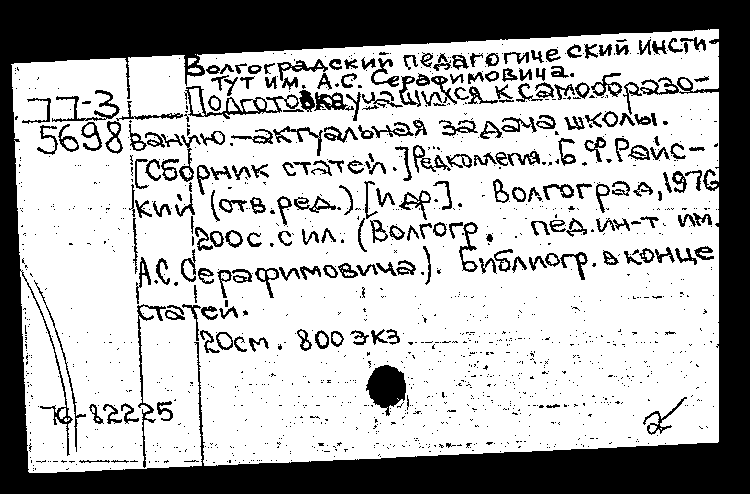 Волгоградский педагогический инсти-
тут им. А.С. Серафимовича.
77-3 Подготовка учащихся к самообразо-
5698 ванию. - актуальная задача школы.
[Сборник статей.] Редколлегия... Б.Ф. Райс-
кий (отв. ред.) [и др.]. Волгоград, 1976
200 с. с ил. (Волгогр. пед. ин-т им.
А.С. Серафимовича.). Библиогр. в конце
статей.
20 см. 800 экз.
76-82225
2